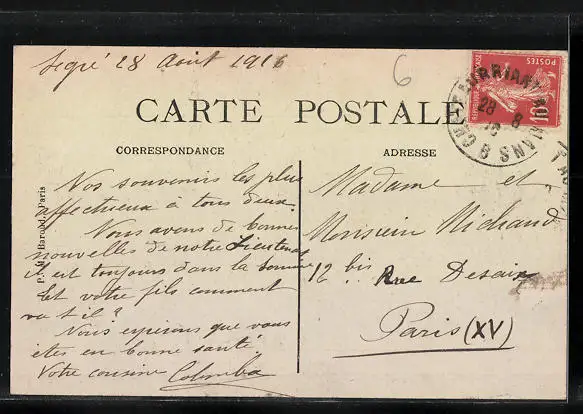 Segré 28 Août 1916
6
CARTE POSTALE
CORRESPONDANCE
ADRESSE
POSTES
10
28 8
Nos souvenirs les plus
affectueux à tous deux.
Nous avons de bonnes
nouvelles de notre Lieutenant
il est toujours dans la Somme
Et votre fils comment
va t il ?
Nous espérons que vous
êtes en bonne santé
Votre cousine Colomba
Madame et
Monsieur Michaud
12 bis Rue Desaix
Paris (XV)
Paris